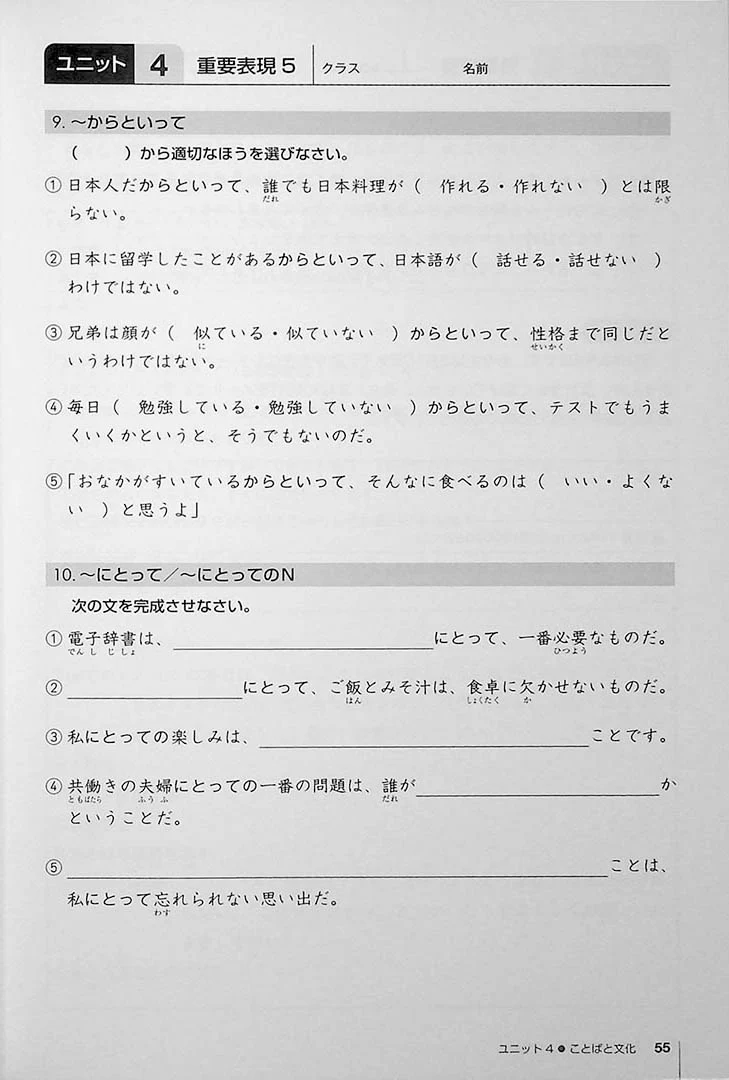 ユニット 4 重要表現5 クラス 名前
9. ～からといって
（　　）から適切なほうを選びなさい。
① 日本人だからといって、誰でも日本料理が（　作れる・作れない　）とは限
だれ かぎ
らない。
② 日本に留学したことがあるからといって、日本語が（　話せる・話せない　）
わけではない。
③ 兄弟は顔が（　似ている・似ていない　）からといって、性格まで同じだと
に せいかく
いうわけではない。
④ 毎日（　勉強している・勉強していない　）からといって、テストでもうま
くいくかというと、そうでもないのだ。
⑤「おなかがすいているからといって、そんなに食べるのは（　いい・よくな
い　）と思うよ」
10. ～にとって／～にとってのN
次の文を完成させなさい。
① 電子辞書は、＿＿＿＿＿＿＿＿にとって、一番必要なものだ。
でんしじしょ ひつよう
② ＿＿＿＿＿＿＿＿にとって、ご飯とみそ汁は、食卓に欠かせないものだ。
はん しょくたく か
③ 私にとっての楽しみは、＿＿＿＿＿＿＿＿ことです。
④ 共働きの夫婦にとっての一番の問題は、誰が＿＿＿＿＿＿＿＿か
ともばたら ふうふ だれ
ということだ。
⑤ ＿＿＿＿＿＿＿＿ことは、
私にとって忘れられない思い出だ。
わす
ユニット4●ことばと文化 55